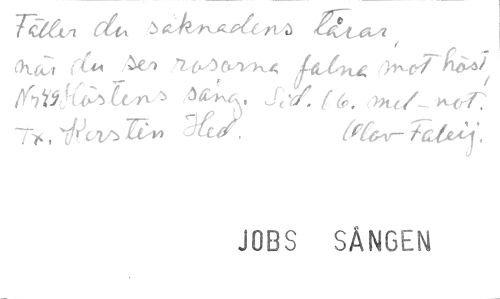 Fäller du saknadens tårar,
när du ser rosorna falna mot höst,
Nr 49 Höstens sång. Sid. 16. mel-not.
Tx. Kerstin Hed. Olov Faleij.
JOBS SÅNGEN